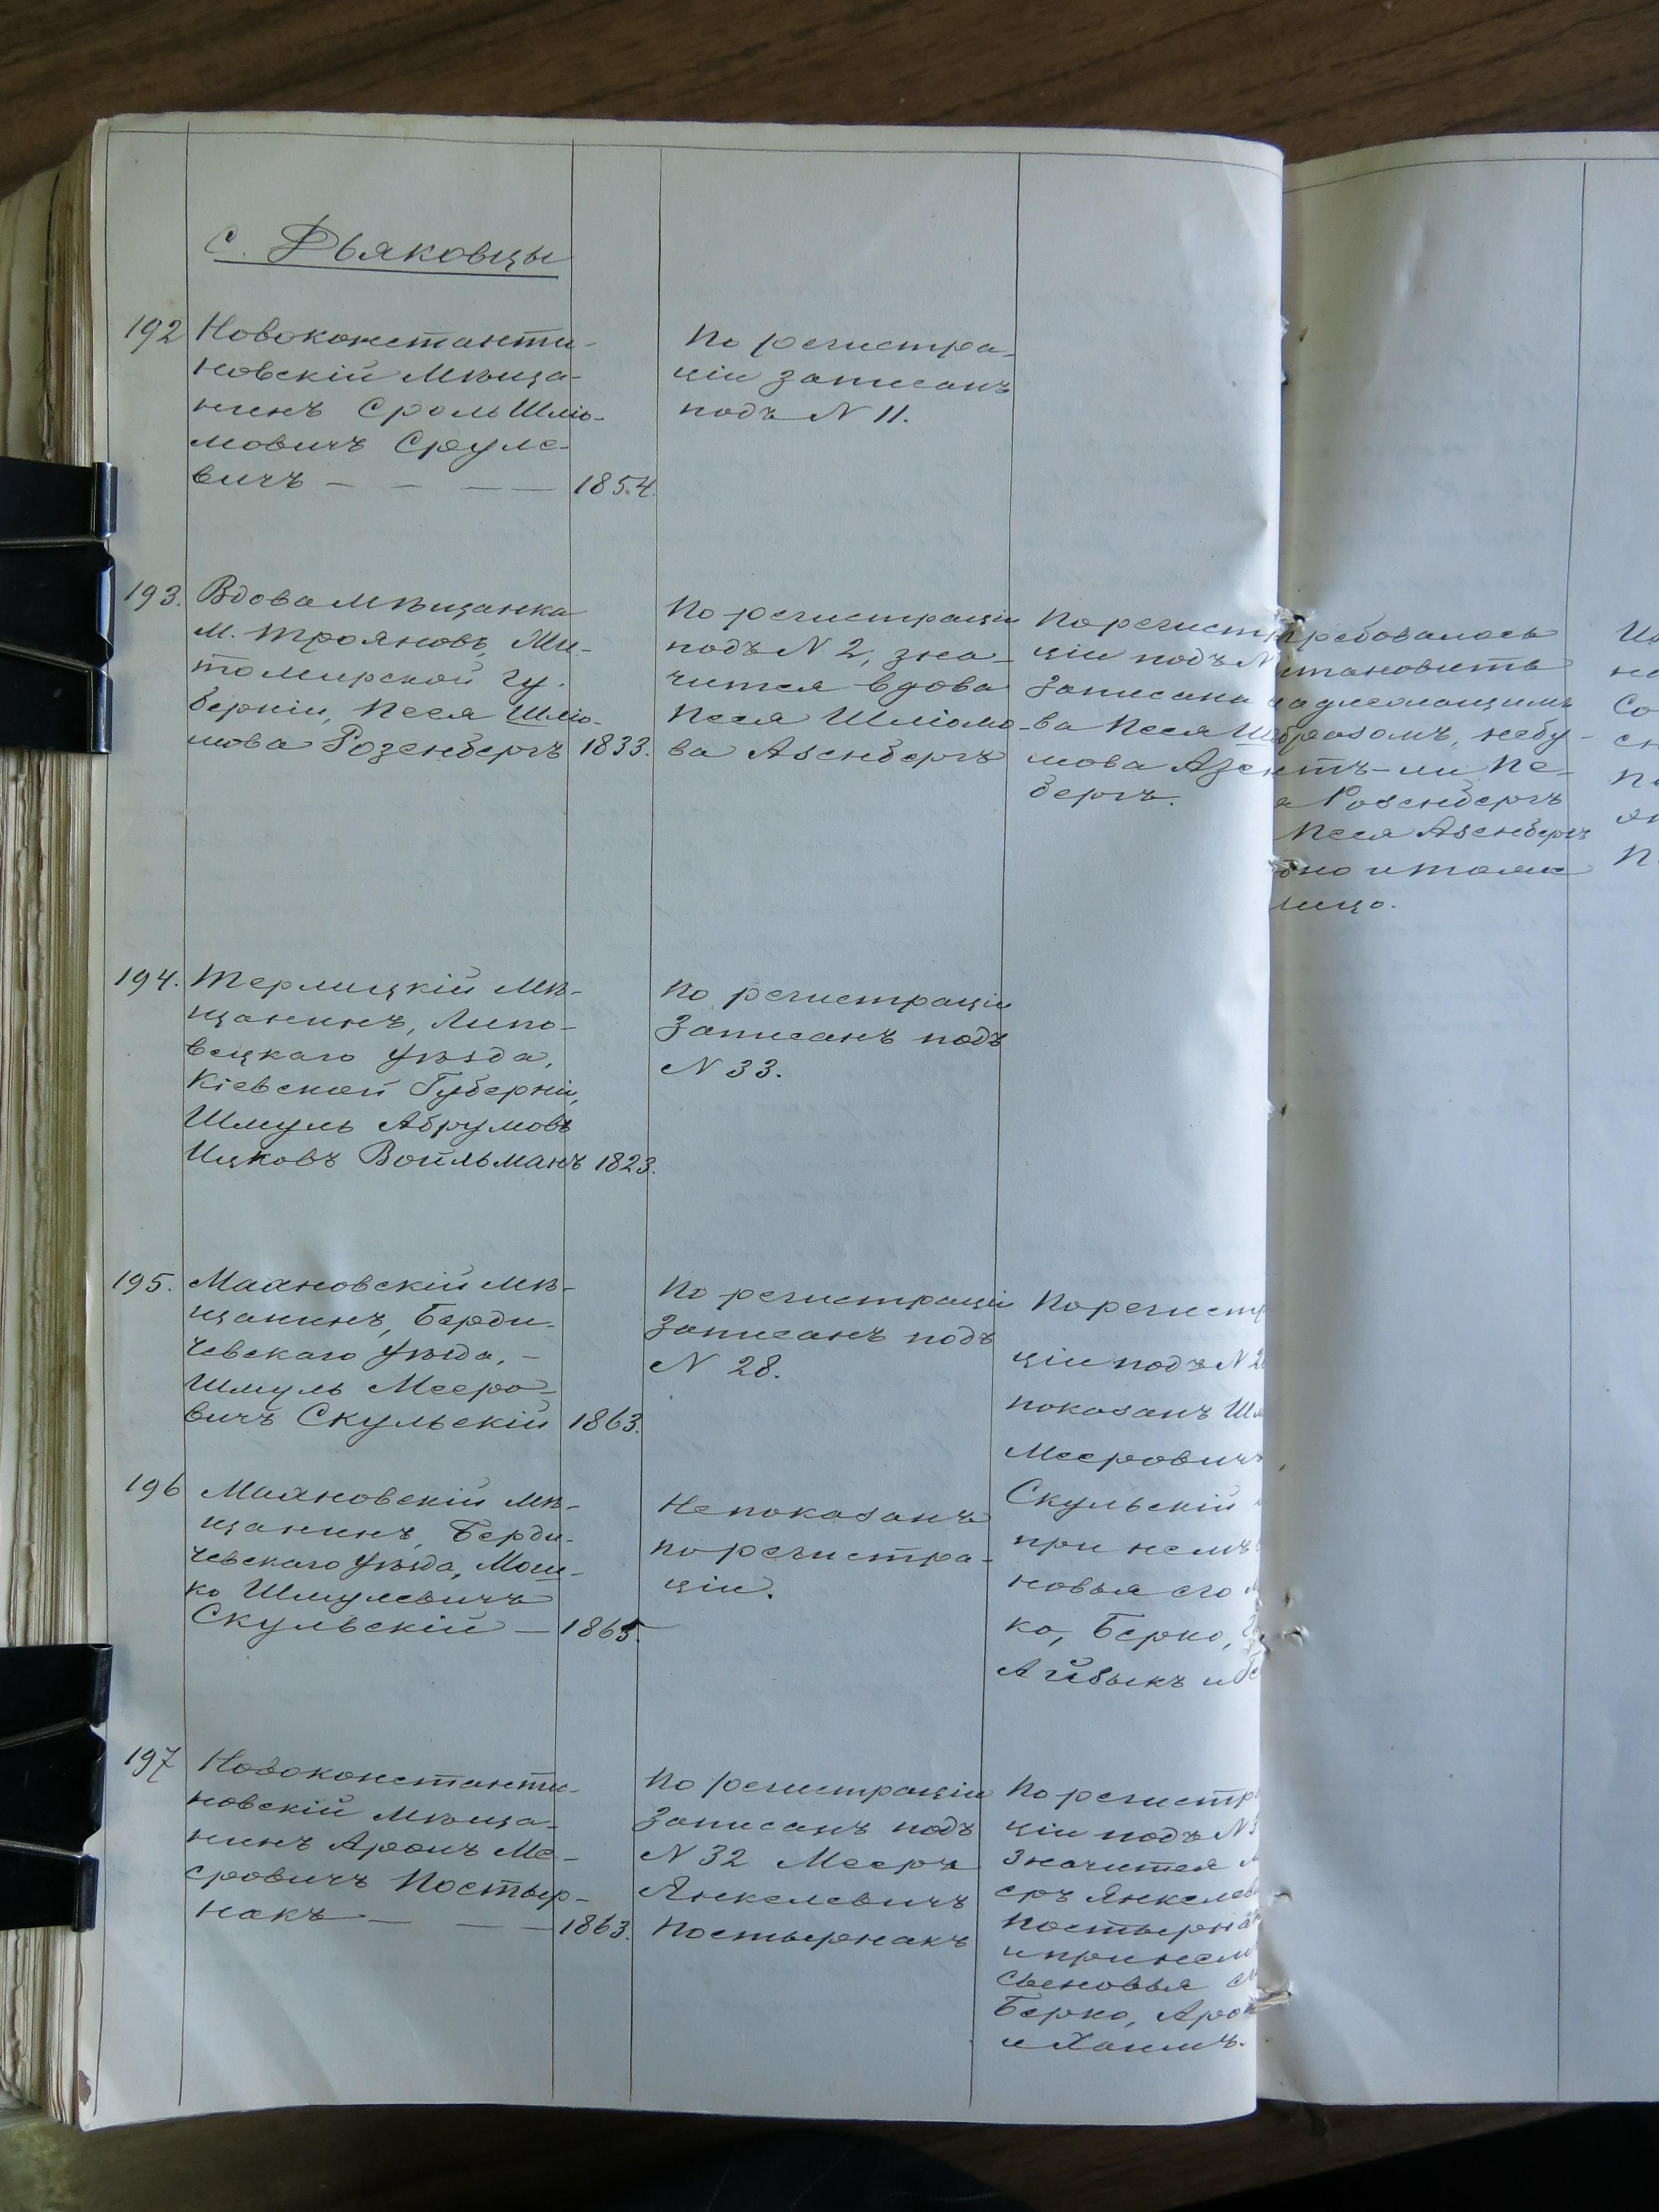 С. Дьяковцы
192
Новоконстанти-
новскій Мѣща-
нинъ Сроль Шлiо-
мовичъ Сруле-
вичъ — — — — 1854.
По регистра-
ціи записанъ
подъ N 11.
193.
Вдова мѣщанка
м. Трояновъ, Жи-
томирской гу-
берніи, Песя Шліо-
мова Розенбергъ 1833.
По регистраціи
подъ N 2, зна-
чится вдова
Песя Шліомо-
ва Азенбергъ
По регист
ціи подъ N
записана
ва Песя Шл
мова Азен
бергъ.
требовалось
становить
надлежащимъ
образомъ, небу-
етъ-ли Пе-
я Розенбергъ
Песя Азенбергъ
дно и тоже
лицо.
194.
Терлицкій мѣ-
щанинъ, Липо-
вецкаго уѣзда,
Кіевской Губерніи,
Шмуль Абрумовъ
Ицковъ Войльманъ 1823.
По регистраціи
записанъ подъ
N 33.
195.
Махновскій мѣ-
щанинъ, Берди-
чевскаго уѣзда, —
Шмуль Мееро-
вичъ Скульскій 1863.
По регистраціи
записанъ подъ
N 28.
По регистр
ціи подъ N 2
показанъ Шм
Мееровичъ
Скульскій
при немъ
новья его
ко, Берко,
Айзыкъ и Бе
196
Махновскій мѣ-
щанинъ, Берди-
чевскаго уѣзда, Мош-
ко Шмулевичъ
Скульскій — 1865.
Непоказанъ
по регистра-
ціи.
197
Новоконстанти-
новскій мѣща-
нинъ Аронъ Ме-
еровичъ Постыр-
накъ — — — 1863.
По регистраціи
записанъ подъ
N 32 Мееръ
Янкелевичъ
Постырнакъ
По регистр
ціи подъ N 3
значится М
еръ Янкелев
Постырна
и при нем
сыновья
Берко, Аро
и Хаимъ.